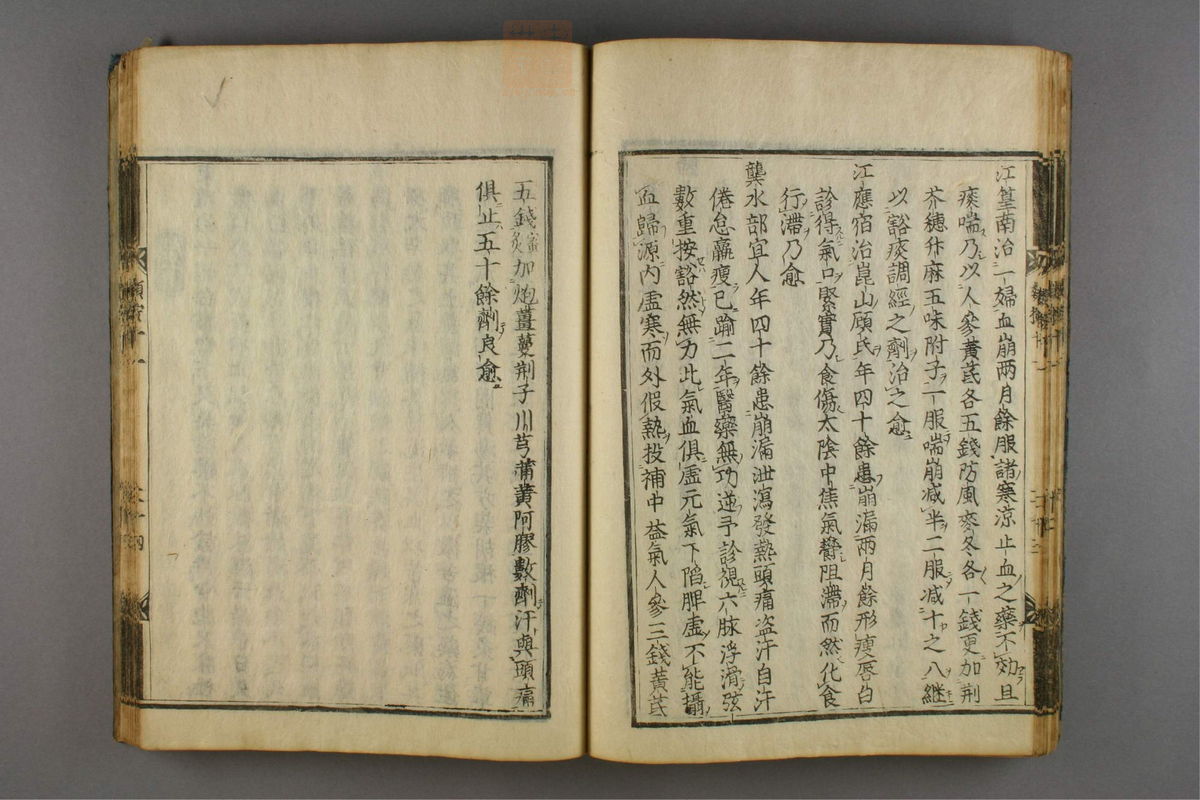 江篁南治一婦血崩兩月餘服諸寒涼止血之藥不効且
痰喘乃以人參黃茋各五錢防風麥冬各一錢更加荆
芥穗升麻五味附子一服喘崩减半二服减十之八継
以豁痰調經之劑治之愈
江應宿治崑山顧氏年四十餘患崩漏兩月餘形瘦唇白
診得氣口緊實乃食傷太陰中焦氣欝阻滯而然化食
行滯乃愈
龔水部宜人年四十餘患崩漏泄瀉發熱頭痛盜汗自汗
倦怠羸瘦已踰二年醫藥無功逆予診視六脉浮滑弦
數重按豁然無力此氣血俱虛元氣下陷脾虛不能攝
血歸源内虛寒而外假熱投補中益氣人參三錢黃茋
五錢蜜炙加炮薑蔓荆子川芎蒲黃阿膠數劑汗與頭痛
俱止五十餘劑良愈